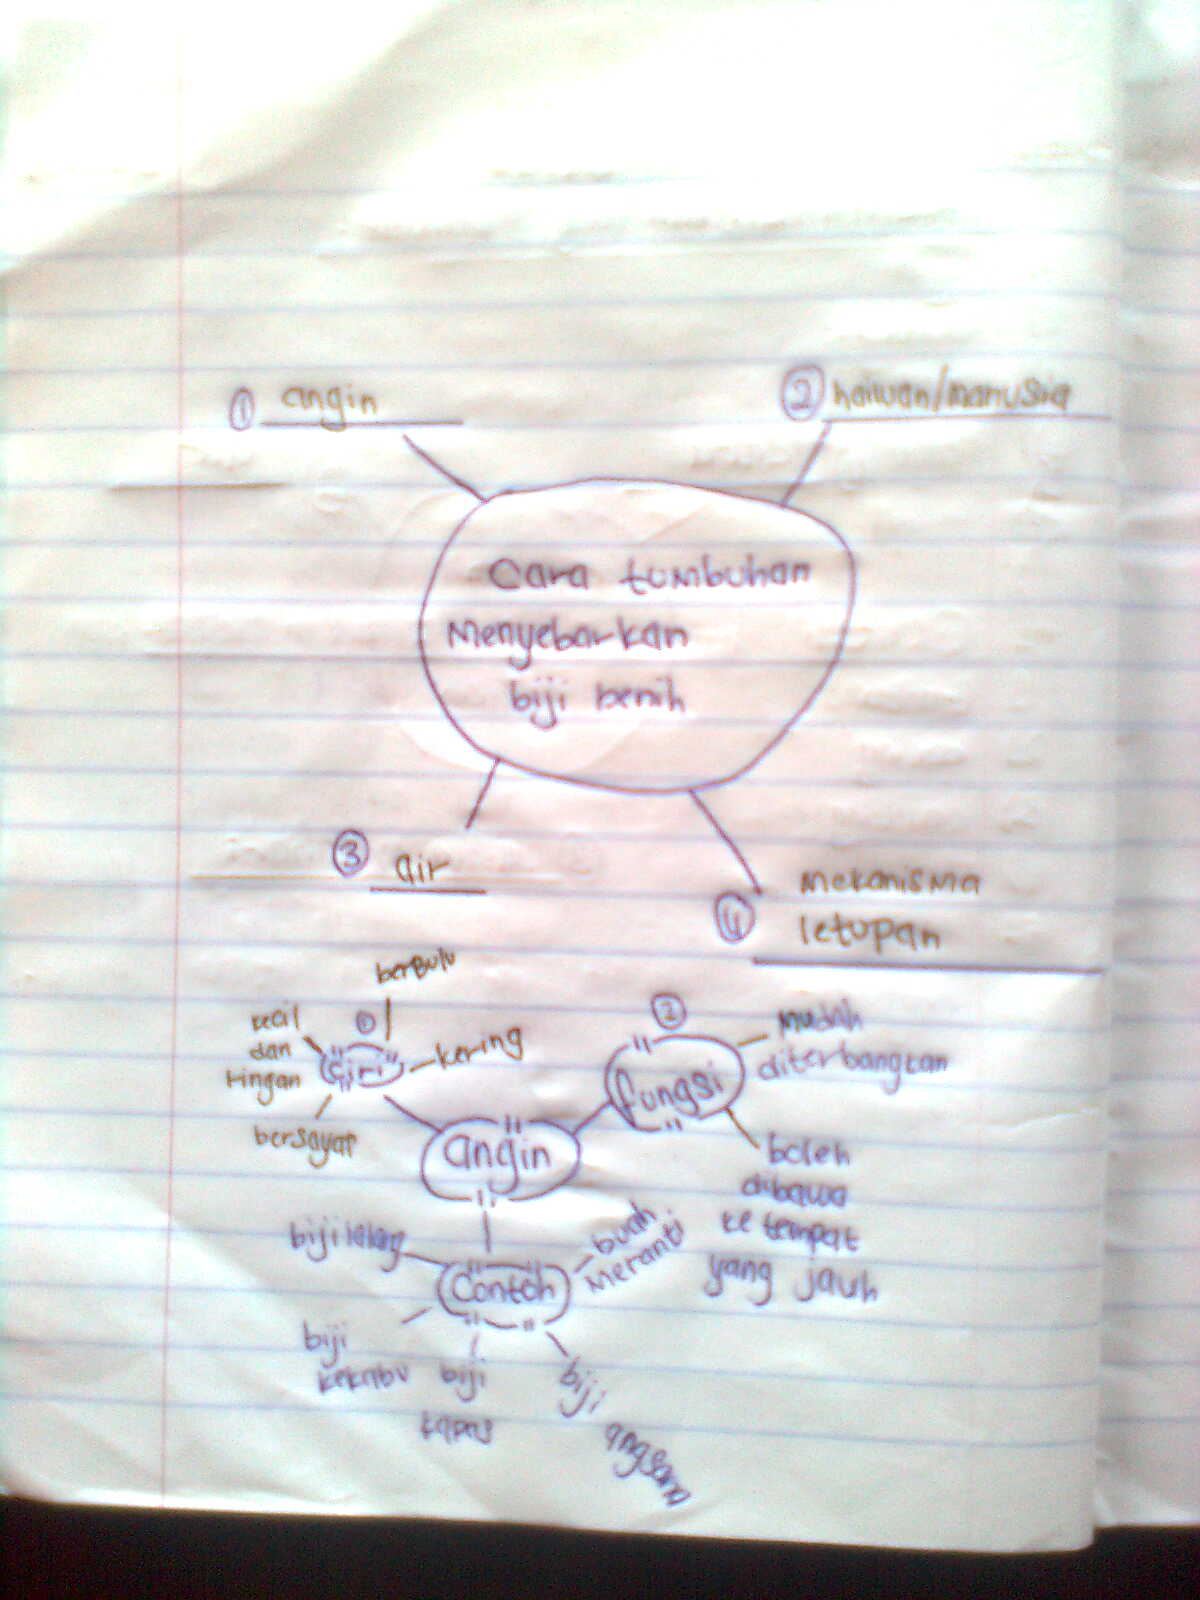 ① angin
② haiwan/manusia
Cara tumbuhan
Menyebarkan
biji benih
③ air
④ mekanisma
letupan
berbulu
kecil
dan
ringan
①
ciri
kering
bersayap
②
fungsi
mudah
diterbangkan
boleh
dibawa
ke tempat
yang jauh
angin
biji lalang
contoh
buah
meranti
biji
kekabu
biji
kapas
biji
angsana